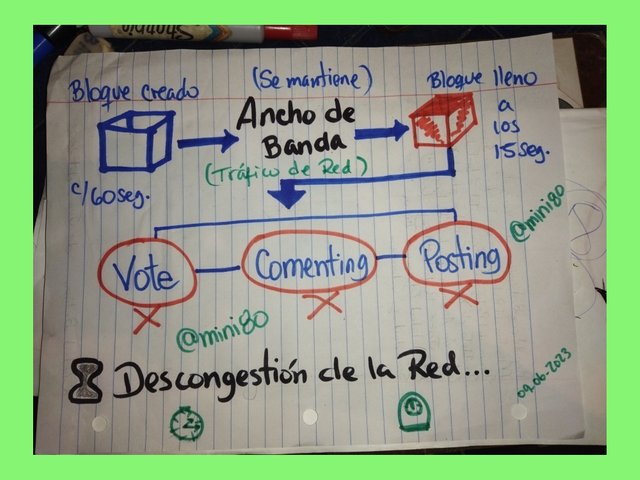 Sharpie
Bloque creado
(Se mantiene)
Bloque lleno
a
los
15seg.
Ancho de
Banda
(Tráfico de Red)
c/60seg.
@mini80
Vote
Comenting
Posting
@mini80
Descongestión de la Red...
09-06-2023